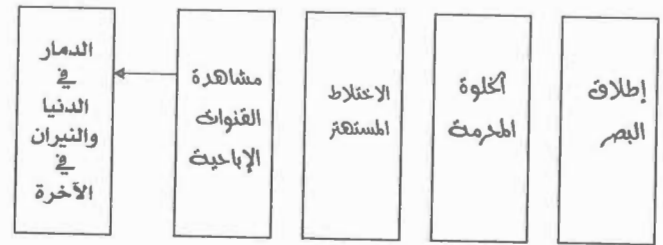 إطلاق
البصر
الخلوة
المحرمة
الاختلاط
المستهتر
مشاهدة
القنوات
الإباحية
الدمار
في
الدنيا
والنيران
في
الآخرة